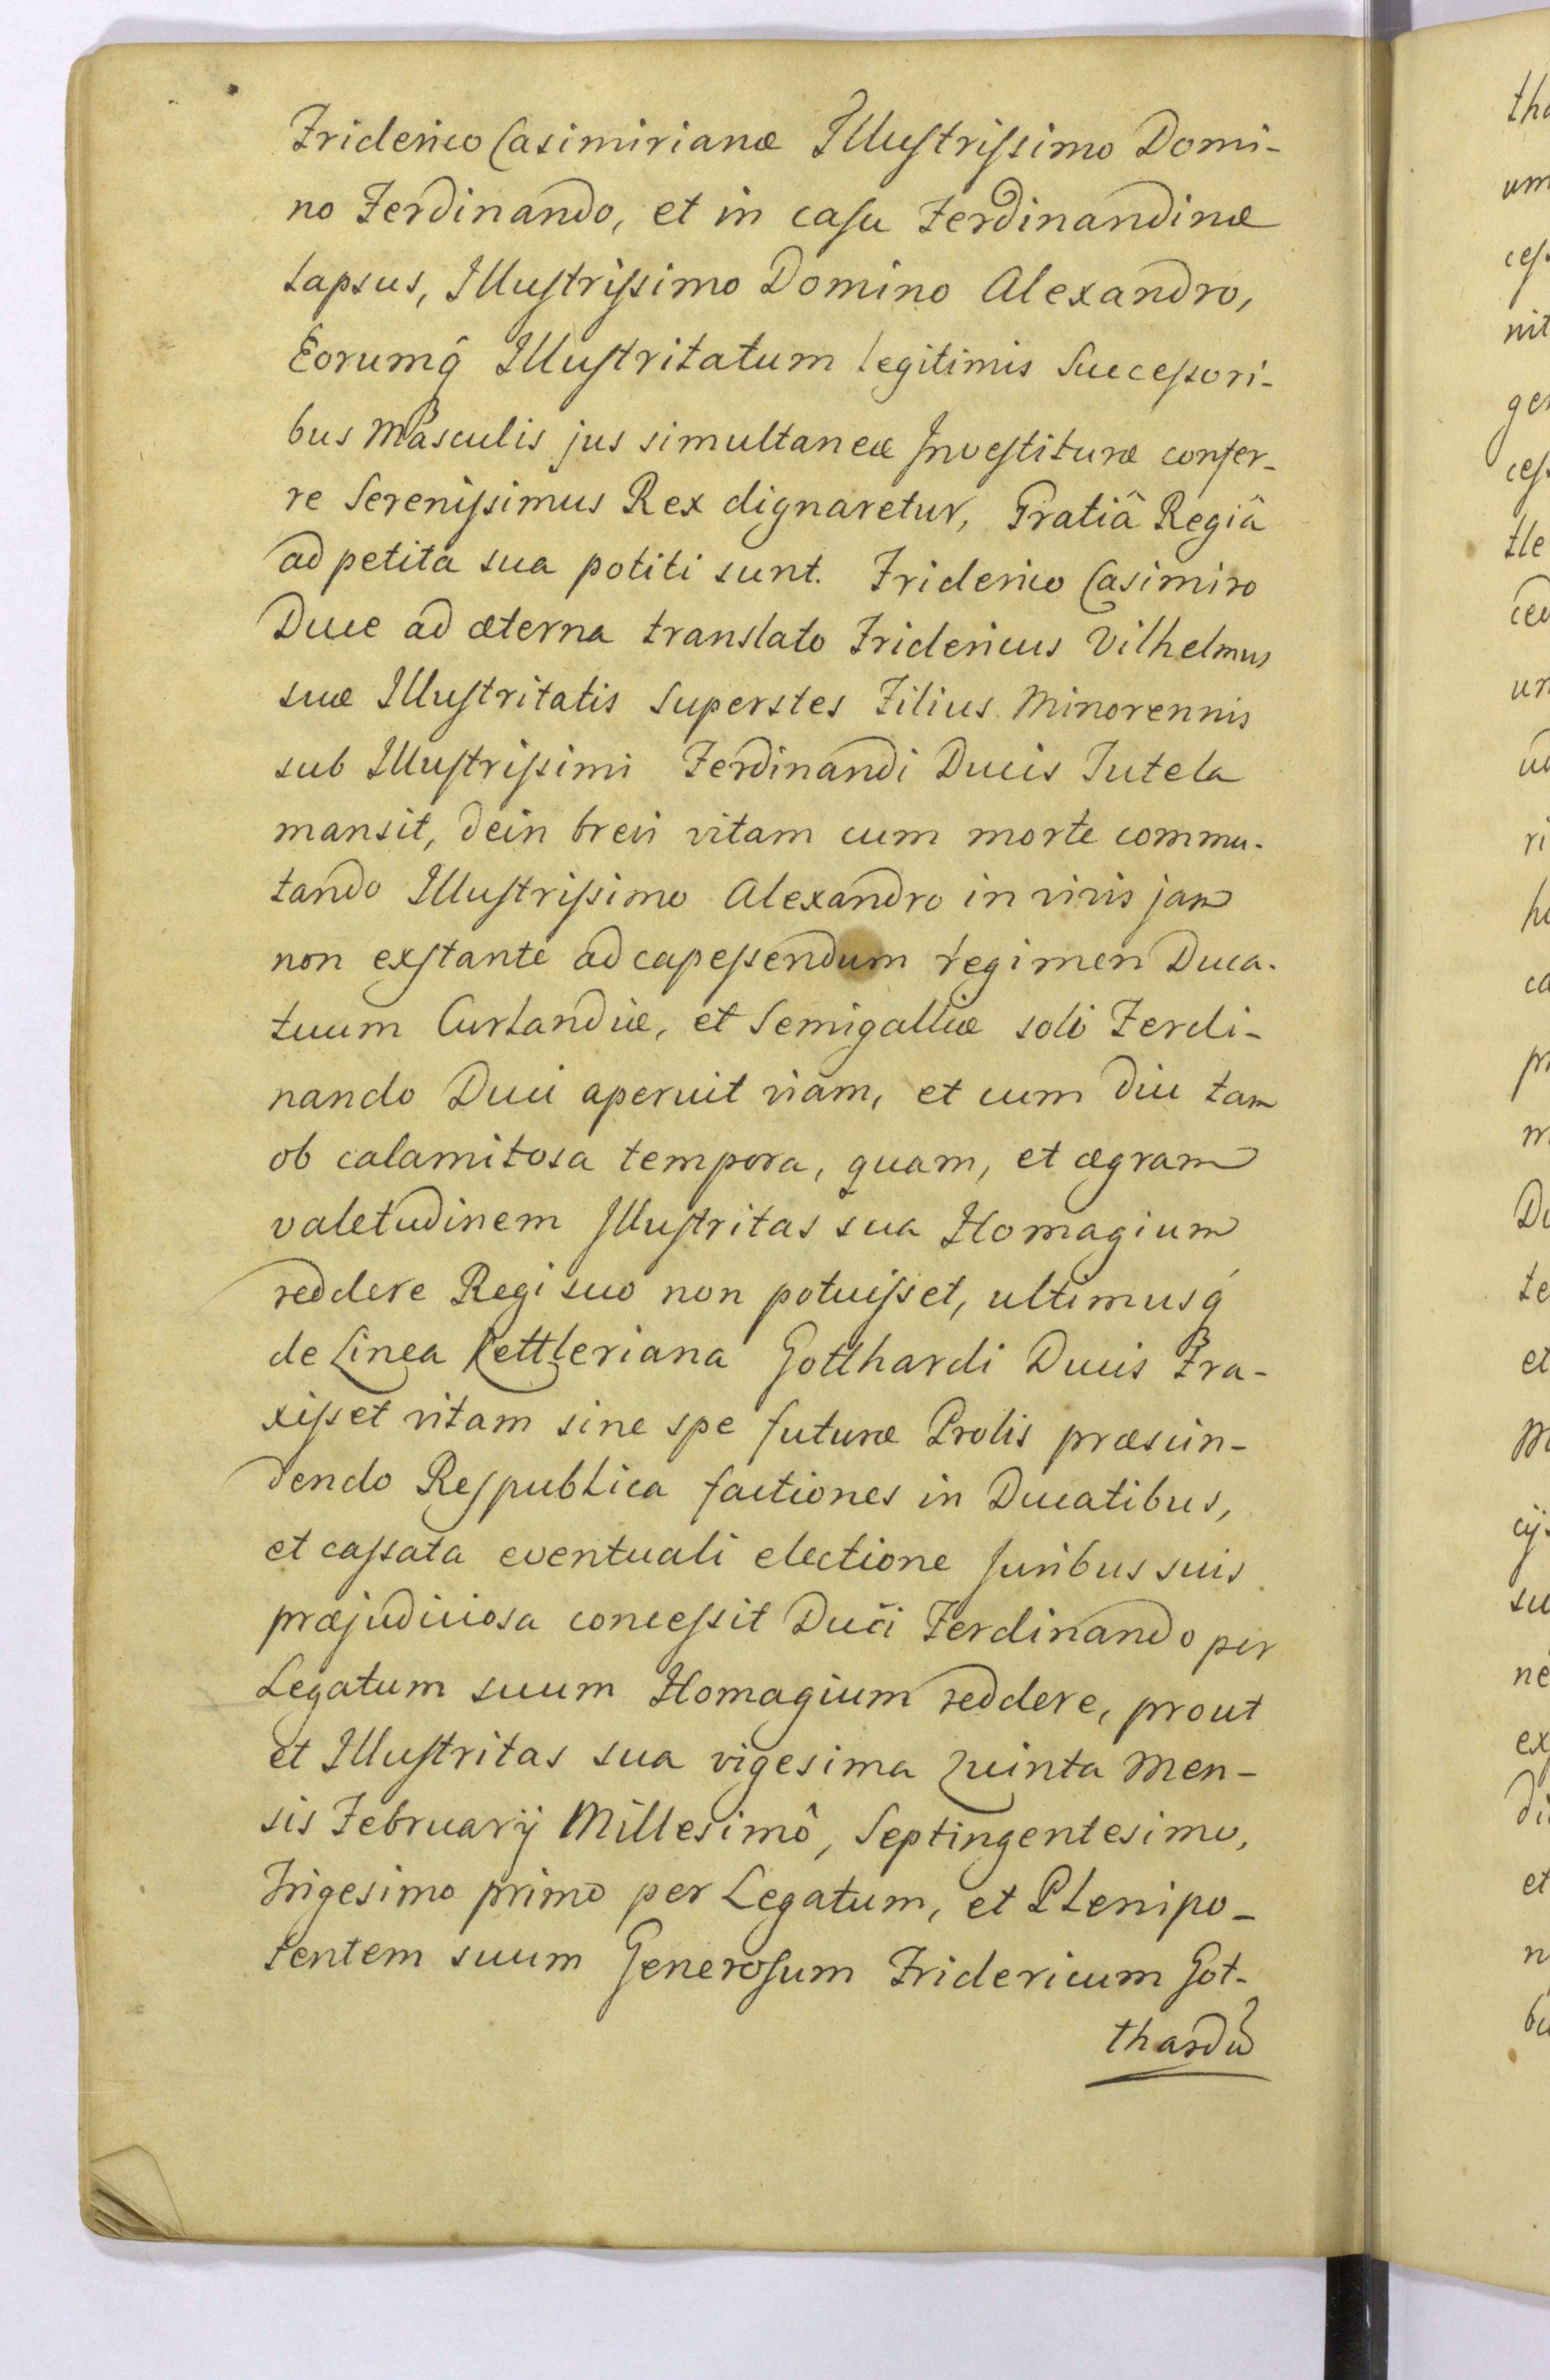 Friderico Casimirianæ Illustrissimo Domi-
no Ferdinando, et in casu Ferdinandinæ
Lapsus, Illustrissimo Domino Alexandro,
Eorumq̂ Illustritatum legitimis Successori-
bus Masculis jus simultaneæ Investituræ confer-
re Serenissimus Rex dignaretur, Gratiâ Regiâ
ad petita sua potiti sunt. Friderico Casimiro
Duce ad æterna translato Fridericus Vilhelmus
suæ Illustritatis Superstes Filius Minorennis
sub Illustrissimi Ferdinandi Ducis Tutela
mansit, dein brevi vitam cum morte commu-
tando Illustrissimo Alexandro in vivis jam
non exstante ad capessendum regimen Duca-
tuum Curlandiæ, et Semigalliæ soli Ferdi-
nando Duci aperuit viam, et cum diu tam
ob calamitosa tempora, quam, et ægram
valetudinem Illustritas sua Homagium
reddere Regi suo non potuisset, ultimusq́
de Linea Kettleriana Gotthardi Ducis Tra-
xisset vitam sine spe futuræ Prolis præscin-
dendo Respublica factiones in Ducatibus,
et cassata eventuali electione Juribus suis
præjudiciosa concessit Duci Ferdinando per
Legatum suum Homagium reddere, prout
et Illustritas sua vigesima Quinta Men-
sis Februarij Millesimô, Septingentesimo,
Trigesimo primo per Legatum, et Plenipo-
tentem suum Generosum Fridericum Got-
thardū
tha
um
ces-
nit
ger
ces-
tle
ced
un
ud
ri
ha
ca
pr
m
Du
te
et
M
cij-
su
ne
ex
di
et
n
bu